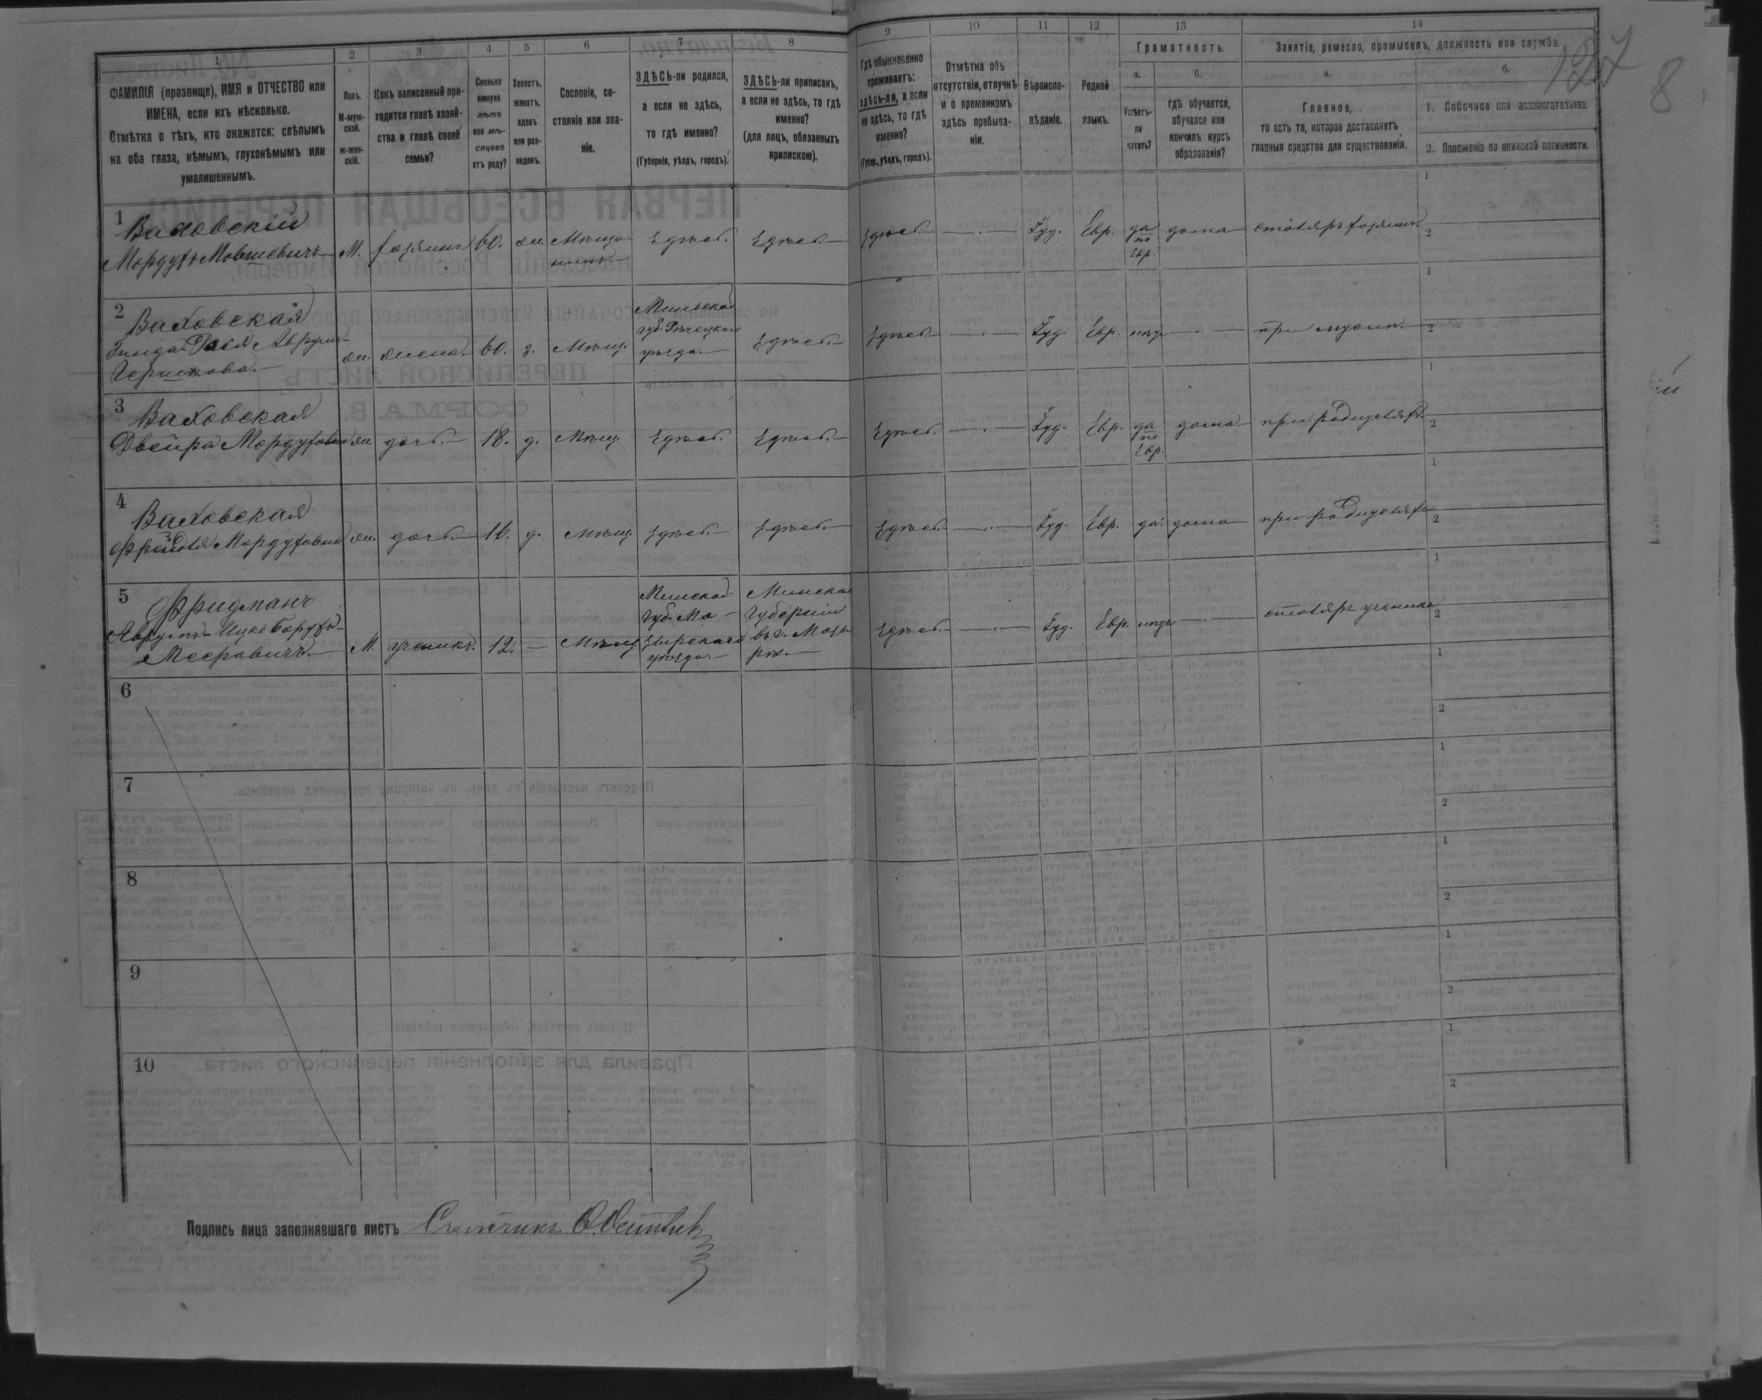 1 2 3 4 5 6 7 8 9 10 11 12 13 14
127 8
ФАМИЛІЯ (прозвище), ИМЯ и ОТЧЕСТВО или
ИМЕНА, если ихъ нѣсколько.
Отмѣтка о тѣхъ, кто окажется: слѣпымъ
на оба глаза, нѣмымъ, глухонѣмымъ или
умалишеннымъ.
Полъ.
М-муж-
ской.
ж-жен-
скій.
Какъ записанный при-
ходится главѣ хозяй-
ства и главѣ своей
семьи?
Сколько
минуло
лѣтъ
или мѣ-
сяцевъ
отъ роду?
Холостъ,
женатъ,
вдовъ
или раз-
веденъ.
Сословіе, со-
стояніе или зва-
ніе.
ЗДѢСЬ-ли родился,
а если не здѣсь,
то гдѣ именно?
(Губернія, уѣздъ, городъ).
ЗДѢСЬ-ли приписанъ,
а если не здѣсь, то гдѣ
именно?
(для лицъ, обязанныхъ
припискою).
Гдѣ обыкновенно
проживаетъ:
здѣсь-ли, а если
не здѣсь, то гдѣ
именно?
(Губер., уѣздъ, городъ).
Отмѣтка объ
отсутствіи, отлучкѣ
и о временномъ
здѣсь пребыва-
ніи.
Вѣроиспо-
вѣданіе.
Родной
языкъ.
Грамотность.
а.
Умѣетъ-
ли
читать?
б.
гдѣ обучается,
обучался или
кончилъ курсъ
образованія?
Занятіе, ремесло, промыселъ, должность или служба.
а.
Главное,
то есть то, которое доставляетъ
главныя средства для существованія.
б.
1. Побочное или вспомогательное.
2. Положеніе по воинской повинности.
1 Ваховскій
Мордухъ Мовшевичъ М. хозяинъ 60. ж. Мѣща-
нинъ Здѣсь. Здѣсь Здѣсь Іуд. Евр. да
по
Евр. дома столяръ хозяинъ
1
2
2 Ваховская
Геришкова ж. жена 60. з. Мѣщ. Минской
губ. Рѣчецкаго
уѣзда Здѣсь. Здѣсь Іуд. Евр. нѣтъ при мужѣ
1
2
3 Ваховская
Двейра Мордуховна ж. дочь 18. д. Мѣщ. Здѣсь. Здѣсь. Здѣсь. Іуд. Евр. да
по
Евр. дома при родителяхъ
1
2
4 Ваховская
Мордуховна ж. дочь 16. д. Мѣщ. Здѣсь Здѣсь. Здѣсь Іуд. Евр. да. дома при родителяхъ
1
2
5 Фридманъ
Аврумъ-Ицко Борухъ
Мееровичъ М. ученикъ. 12. Мѣщ. Минской
Губ. Мо-
зырскаго
уѣзда Минской
Губерніи
въ г. Мозы-
рѣ Здѣсь Іуд. Евр. нѣтъ столяръ ученикъ
1
2
6
1
2
7
1
2
8
1
2
9
1
2
10
1
2
Подпись лица заполнявшаго листъ Счетчикъ